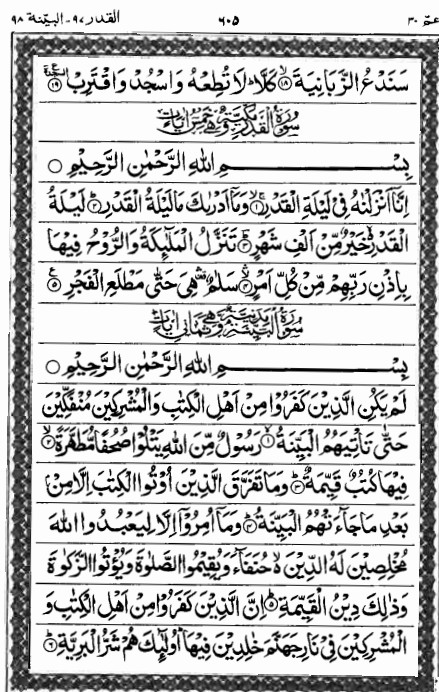 القدر ٩٧ - البيّنة ٩٨ ٦٠٥ عمّ ٣٠
سَنَدْعُ الزَّبَانِيَةَ ﴿١٨﴾ كَلَّا ؕ لَا تُطِعْهُ وَاسْجُدْ وَاقْتَرِبْ ﴿١٩﴾
سُورَةُ الْقَدْرِ مَكِّيَّةٌ وَّهِيَ خَمْسُ اٰيَاتٍ
بِسْـــــــمِ اللّٰهِ الرَّحْمٰنِ الرَّحِيْمِ ○
اِنَّاۤ اَنْزَلْنٰهُ فِيْ لَيْلَةِ الْقَدْرِ ﴿١﴾ وَمَاۤ اَدْرٰىكَ مَا لَيْلَةُ الْقَدْرِ ﴿٢﴾ لَيْلَةُ
الْقَدْرِ خَيْرٌ مِّنْ اَلْفِ شَهْرٍ ﴿٣﴾ تَنَزَّلُ الْمَلٰٓئِكَةُ وَالرُّوْحُ فِيْهَا
بِاِذْنِ رَبِّهِمْ مِّنْ كُلِّ اَمْرٍ ﴿٤﴾ سَلٰمٌ هِيَ حَتّٰى مَطْلَعِ الْفَجْرِ ﴿٥﴾
سُورَةُ الْبَيِّنَةِ مَدَنِيَّةٌ وَّهِيَ ثَمَانِيْ اٰيَاتٍ
بِسْـــــــمِ اللّٰهِ الرَّحْمٰنِ الرَّحِيْمِ ○
لَمْ يَكُنِ الَّذِيْنَ كَفَرُوْا مِنْ اَهْلِ الْكِتٰبِ وَالْمُشْرِكِيْنَ مُنْفَكِّيْنَ
حَتّٰى تَاْتِيَهُمُ الْبَيِّنَةُ ﴿١﴾ رَسُوْلٌ مِّنَ اللّٰهِ يَتْلُوْا صُحُفًا مُّطَهَّرَةً ﴿٢﴾
فِيْهَا كُتُبٌ قَيِّمَةٌ ﴿٣﴾ وَمَا تَفَرَّقَ الَّذِيْنَ اُوْتُوا الْكِتٰبَ اِلَّا مِنْۢ
بَعْدِ مَا جَآءَتْهُمُ الْبَيِّنَةُ ﴿٤﴾ وَمَاۤ اُمِرُوْۤا اِلَّا لِيَعْبُدُوا اللّٰهَ
مُخْلِصِيْنَ لَهُ الدِّيْنَ ۙ حُنَفَآءَ وَيُقِيْمُوا الصَّلٰوةَ وَيُؤْتُوا الزَّكٰوةَ
وَذٰلِكَ دِيْنُ الْقَيِّمَةِ ﴿٥﴾ اِنَّ الَّذِيْنَ كَفَرُوْا مِنْ اَهْلِ الْكِتٰبِ وَ
الْمُشْرِكِيْنَ فِيْ نَارِ جَهَنَّمَ خٰلِدِيْنَ فِيْهَا ؕ اُولٰٓئِكَ هُمْ شَرُّ الْبَرِيَّةِ ﴿٦﴾